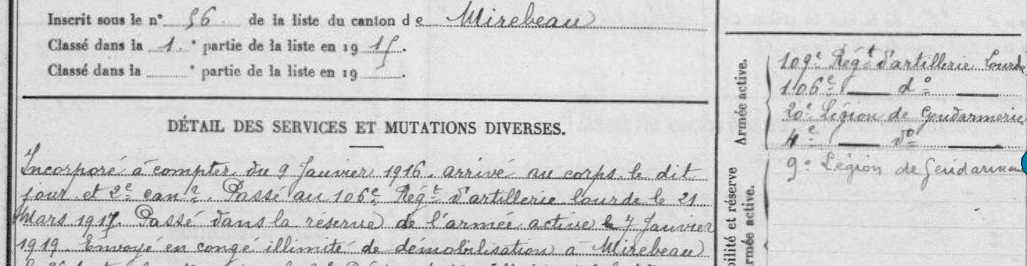 Inscrit sous le n° 56 de la liste du canton de Mirebeau
Classé dans la 1e partie de la liste en 1915.
Classé dans la e partie de la liste en 19 .
DÉTAIL DES SERVICES ET MUTATIONS DIVERSES.
Incorporé à compter du 9 Janvier 1916. arrivé au corps le dit
jour et 2e can.r Passé au 106e Régt d'artillerie lourde le 21
Mars 1917. Passé dans la réserve de l'armée active le 7 Janvier
1919. Envoyé en congé illimité de démobilisation à Mirebeau
Armée active.
109e Régt d'artillerie lourde
106e — do —
20e Légion de Gendarmerie
4e — do —
bilité et réserve
armée active.
9e Légion de Gendarmerie